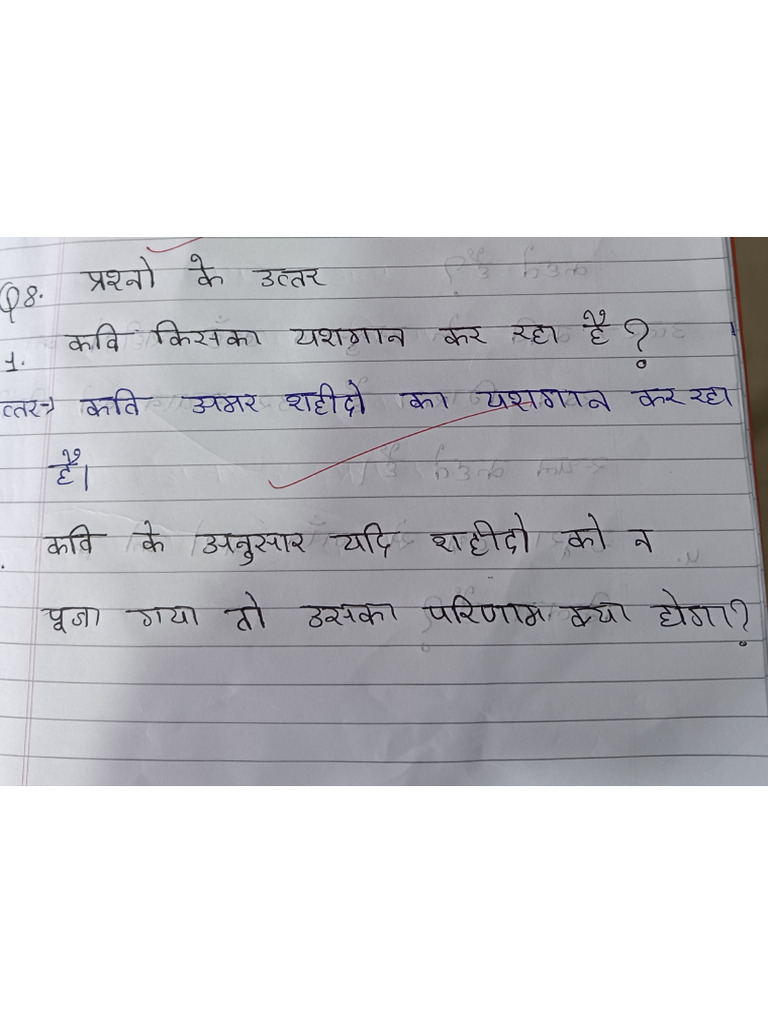 Q8. प्रश्नो के उत्तर
1. कवि किसका यशगान कर रहा है ?
त्तर→ कवि अमर शहीदो का यशगान कर रहा
है।
कवि के अनुसार यदि शहीदो को न
पूजा गया तो उसका परिणाम क्या होगा?